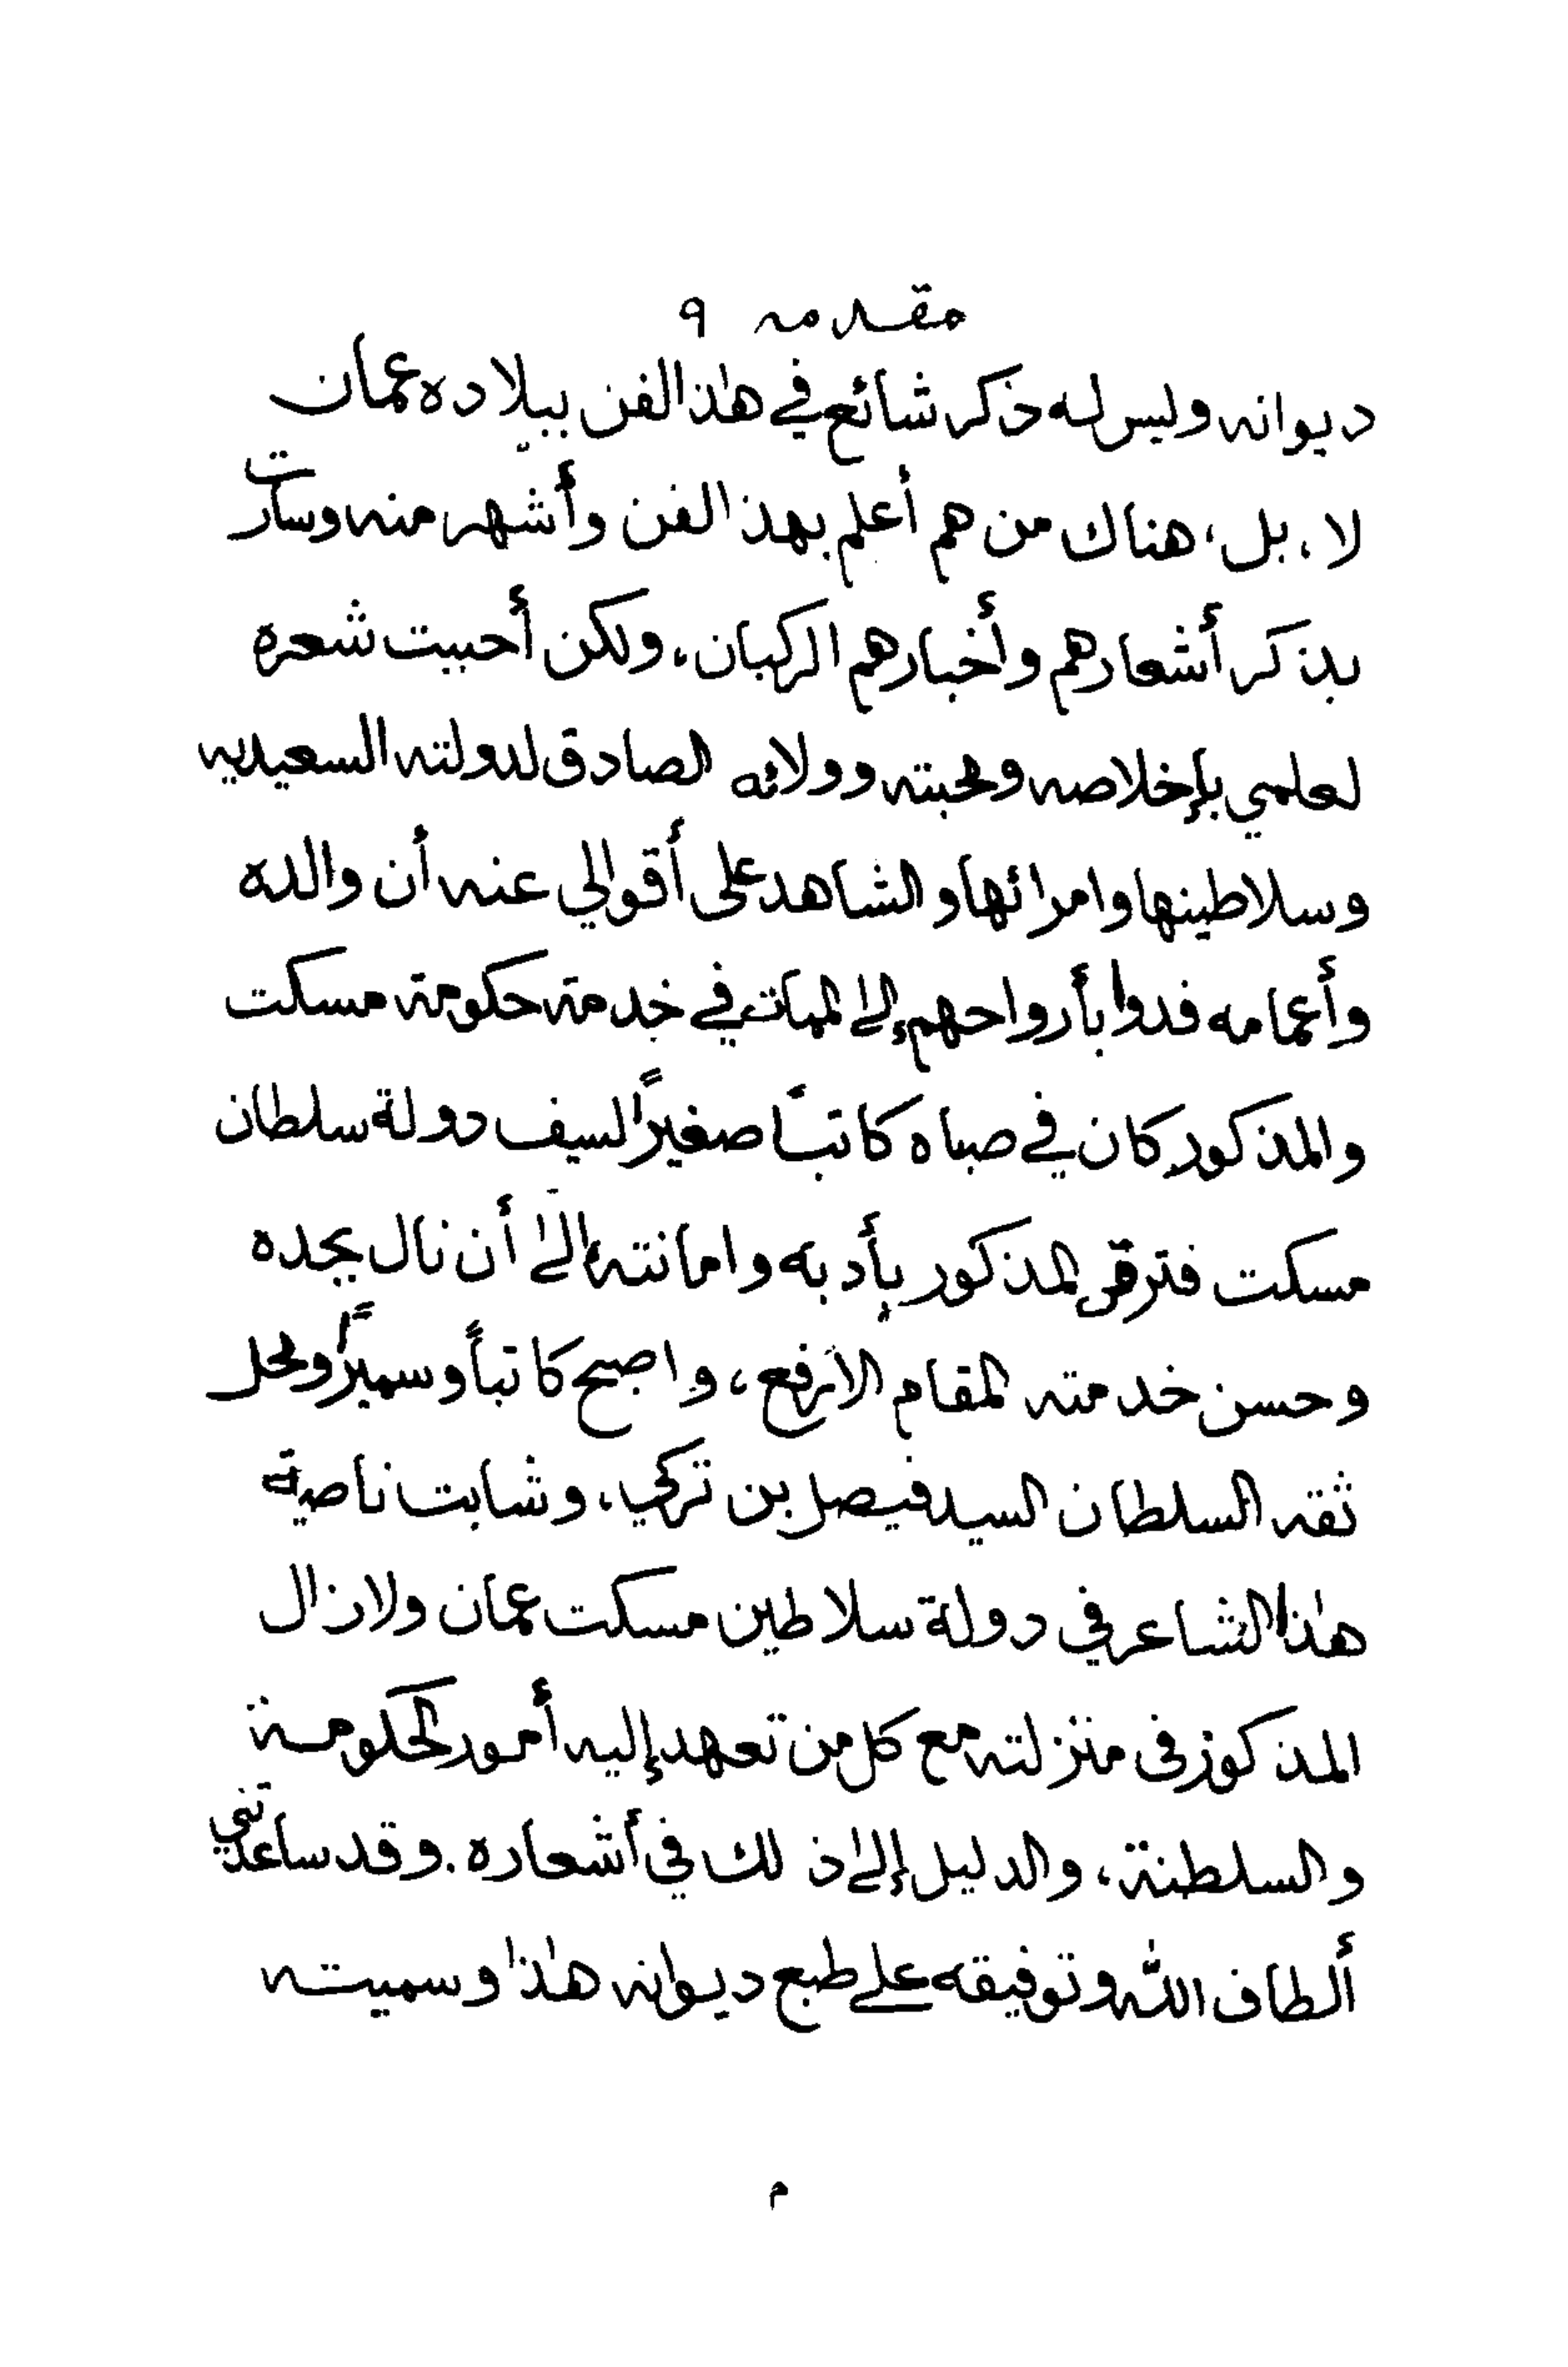 مقدمه ٩
ديوانه وليس له ذكر شائع في هٰذا الفن ببلاده عمان
لا، بل، هناك من هم أعلم بهذا الفن وأشهر منه وسارت
بذكر أشعارهم وأخبارهم الركبان، ولكن أحببت شعره
لعلمي بإخلاصه ومحبته وولائه الصادق لدولته السعيديه
وسلاطينها وامرائها والشاهد على أقوالي عنه أن والده
وأعمامه فدوا بأرواحهم إلى الممات في خدمة حكومة مسكت
والمذكور كان في صباه كاتبًا صغيرًا لسيف دولة سلطان
مسكت فترقى المذكور بأدبه وامانته الىٰ أن نال بجده
وحسن خدمته المقام الأرفع، واصبح كاتبًا وسميرًا ومحل
ثقه السلطان السيد فيصل بن تركي، وشابت ناصية
هٰذا الشاعر في دولة سلاطين مسكت عمان ولازال
المذكور في منزلته مع كل من تعهد إليه أمور الحكومة
والسلطنة، والدليل إلىٰ ذلك في أشعاره. وقد ساعدتني
ألطاف الله وتوفيقه علے طبع ديوانه هٰذا وسميته
م